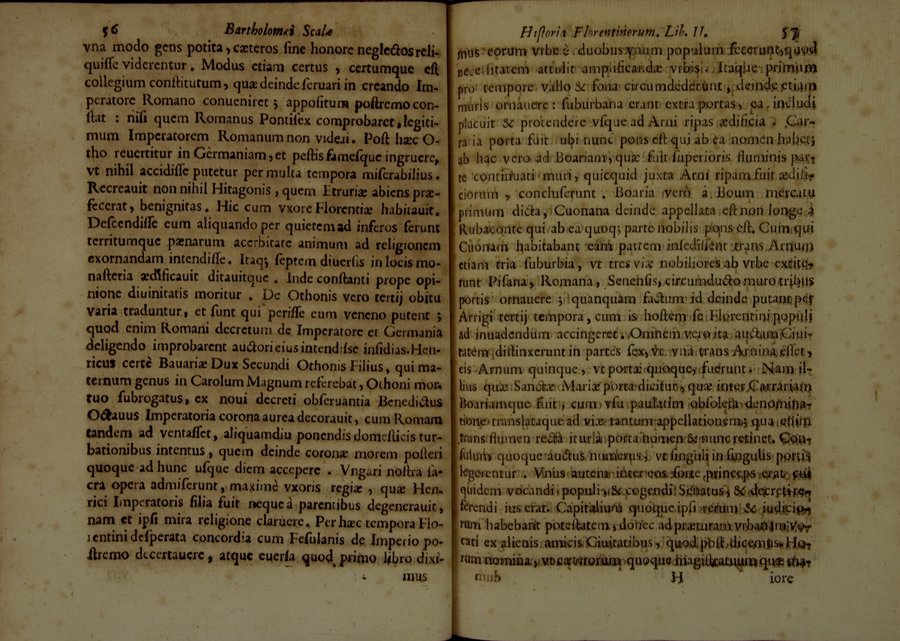 56 Bartholomæi Scalæ
vna modo gens potita, cæteros sine honore neglectos reli-
quisse viderentur. Modus etiam certus, certumque est
collegium constitutum, quæ deinde seruari in creando Im-
peratore Romano conueniret; appositum postremo con-
stat: nisi quem Romanus Pontifex comprobaret, legiti-
mum Imperatorem Romanum non videri. Post hæc O-
tho reuertitur in Germaniam, et pestis famesque ingruere,
vt nihil accidisse putetur per multa tempora miserabilius.
Recreauit non nihil Hitagonis, quem Etruriæ abiens præ-
fecerat, benignitas. Hic cum vxore Florentiæ habitauit.
Descendisse eum aliquando per quietem ad inferos ferunt
territumque pænarum acerbitate animum ad religionem
exornandam intendisse. Itaq; septem diuersis in locis mo-
nasteria ædificauit ditauitque. Inde constanti prope opi-
nione diuinitatis moritur. De Othonis vero tertij obitu
varia traduntur, et sunt qui perisse eum veneno putent;
quod enim Romani decretum de Imperatore et Germania
deligendo improbarent auctori eius intendisse insidias. Hen-
ricus certè Bauariæ Dux Secundi Othonis Filius, qui ma-
ternum genus in Carolum Magnum referebat, Othoni mor-
tuo subrogatus, ex noui decreti obseruantia Benedictus
Octauus Imperatoria corona aurea decorauit, cum Romam
tandem ad ventasset, aliquamdiu ponendis domesticis tur-
bationibus intentus, quem deinde coronæ morem posteri
quoque ad hunc vsque diem accepere. Vngari nostra sa-
cra opera admiserunt, maximè vxoris regiæ, quæ Hen-
rici Imperatoris filia fuit neque à parentibus degenerauit,
nam et ipsi mira religione claruere. Per hæc tempora Flo-
rentini desperata concordia cum Fesulanis de Imperio po-
stremo decertauere, atque euersa quod primo libro dixi-
mus
Historia Florentinorum. Lib. II. 57
mus eorum vrbe è duobus vnum populum fecerunt, quod
necessitatem attulit amplificandæ vrbis. Itaque primum
pro tempore vallo & fossa circumdederunt, deinde etiam
muris ornauere: suburbana erant extra portas, ea includi
placuit & protendere vsque ad Arni ripas ædificia. Car-
raria porta fuit vbi nunc pons est qui ab ea nomen habet;
ab hac vero ad Boariam, quæ fuit superioris fluminis par-
te continuati muri, quicquid juxta Arni ripam fuit ædifi-
ciorum, concluserunt. Boaria verò à Boum mercatu
primum dicta, Cuonana deinde appellata est non longe à
Rubaconte qui ab ea quoq; parte nobilis pons est. Cum qui
Cuonam habitabant eam partem insedissent trans Arnum
etiam tria suburbia, vt tres viæ nobiliores ab vrbe extite-
runt Pisana, Romana, Senensis, circumducto muro tribus
portis ornauere; quanquam factum id deinde putant per
Arrigi tertij tempora, cum is hostem se Florentini populi
ad inuadendum accingeret. Omnem vero ita auctam Ciui-
tatem distinxerunt in partes sex, vt vna trans Arnina esset,
cis Arnum quinque, vt portæ quoque, fuerunt. Nam il-
lius quæ Sanctæ Mariæ porta dicitur, quæ inter Carrariam
Boariamque fuit, cum vsu paulatim obsoleta denomina-
tione translataque ad viæ tantum appellationem; qua
trans flumen recta itur la porta nomen & nunc retinet. Con-
sulum quoque auctus numerus; vt singuli in singulis portis
legerentur. Vnus autem inter eos forte princeps erat cui
quidem vocandi populi, & cogendi Senatus, & decreti re-
ferendi ius erat. Capitalium quoque ipsi rerum & judicio-
rum habebant potestatem, donec ad præturam vrbanam vo-
cati ex alienis amicis Ciuitatibus, quod post dicemus. Ho-
rum nomina, vt cæterorum quoque magistratuum quæ ma-
H iore